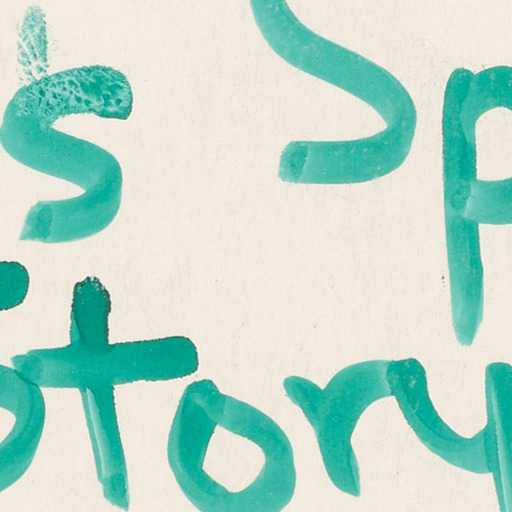 's Sp
story